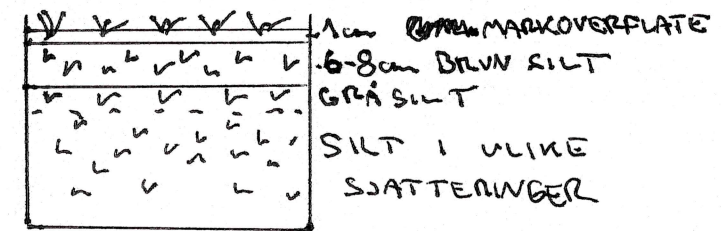 1cm MARKOVERFLATE
6-8cm BRUN SILT
GRÅ SILT
SILT I ULIKE
SJATTERINGER